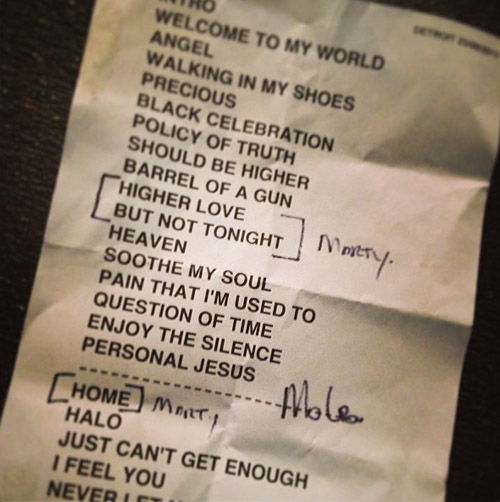 INTRO
WELCOME TO MY WORLD
ANGEL
WALKING IN MY SHOES
PRECIOUS
BLACK CELEBRATION
POLICY OF TRUTH
SHOULD BE HIGHER
BARREL OF A GUN
[HIGHER LOVE
BUT NOT TONIGHT] MARTY.
HEAVEN
SOOTHE MY SOUL
PAIN THAT I'M USED TO
QUESTION OF TIME
ENJOY THE SILENCE
PERSONAL JESUS
[HOME] MARTY
HALO
JUST CAN'T GET ENOUGH
I FEEL YOU
NEVER LET
DETROIT